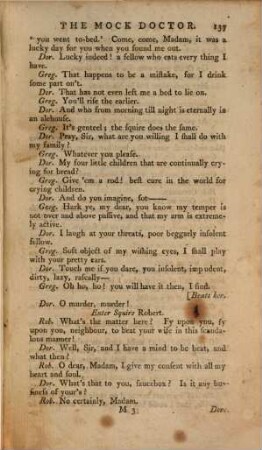 THE MOCK DOCTOR. 137
' you went to-bed.' Come, come, Madam, it was a
lucky day for you when you found me out.
Dor. Lucky indeed! a fellow who eats every thing I
have.
Greg. That happens to be a mistake, for I drink
some part on't.
Dor. That has not even left me a bed to lie on.
Greg. You'll rise the earlier.
Dor. And who from morning till night is eternally in
an alehouse.
Greg. It's genteel: the squire does the same.
Dor. Pray, Sir, what are you willing I shall do with
my family?
Greg. Whatever you please.
Dor. My four little children that are continually cry-
ing for bread?
Greg. Give 'em a rod! best cure in the world for
crying children.
Dor. And do you imagine, sot——
Greg. Hark ye, my dear, you know my temper is
not over and above passive, and that my arm is extreme-
ly active.
Dor. I laugh at your threats, poor beggarly insolent
fellow.
Greg. Soft object of my wishing eyes, I shall play
with your pretty ears.
Dor. Touch me if you dare, you insolent, impudent,
dirty, lazy, rascally——
Greg. Oh ho, ho! you will have it then, I find.
[Beats her.
Dor. O murder, murder!
Enter Squire Robert.
Rob. What's the matter here? Fy upon you, fy
upon you, neighbour, to beat your wife in this scanda-
lous manner!
Dor. Well, Sir, and I have a mind to be beat, and
what then?
Rob. O dear, Madam, I give my consent with all my
heart and soul.
Dor. What's that to you, saucebox? Is it any bu-
siness of your's?
Rob. No certainly, Madam.
M 3 Dor.